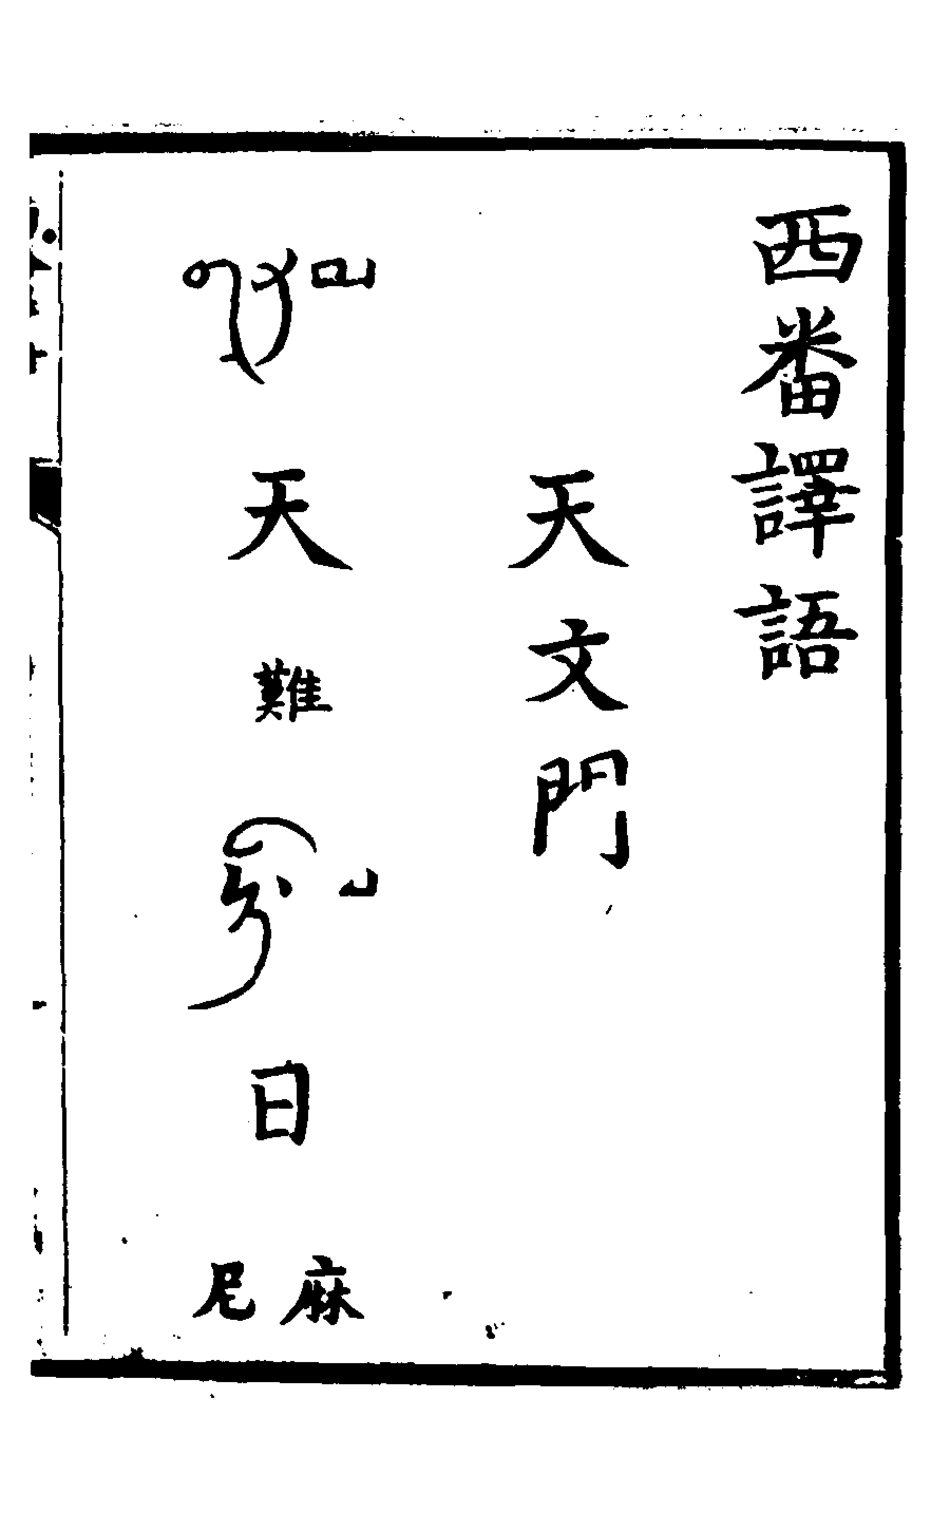 西番譯語
天文門
གནམ
天
難
ཉི་མ
日
尼麻